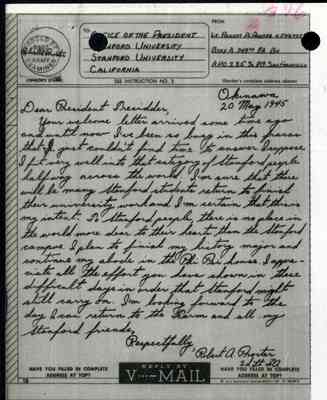 TO:
OFFICE OF THE PRESIDENT
STANFORD UNIVERSITY
STANFORD UNIVERSITY
CALIFORNIA
FROM
APO 235 % PM San Francisco
SEE INSTRUCTION NO. 2
(Sender's complete address above)
Okinawa
20 May 1945
Dear President Tresidder,
Your welcome letter arrived some time ago
and until now I've been so busy in this
that I just couldn't find time to answer. I suppose
I fit very well into that category of Stanford people
half way across the world. I'm sure that there
will be many Stanford students return to finish
their university work and I'm certain that this is
my intent. To Stanford people, there is no place in
the world more dear to their heart than the Stanford
campus. I plan to finish my history major and
continue my abode in the Phi Psi house. I appre-
ciate all the effort you have shown in these
difficult days in order that Stanford might
still carry on. I'm looking forward to the
day I can return to the Farm and all my
Stanford friends.
Respectfully,
Robert A.
2d Lt FA
HAVE YOU FILLED IN COMPLETE
ADDRESS AT TOP?
REPLY BY
V···—MAIL
HAVE YOU FILLED IN COMPLETE
ADDRESS AT TOP?